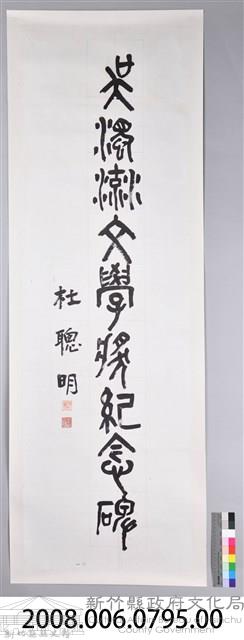 吳濁流文學獎紀念碑
杜聰明
新竹縣政府文化局
County Government
2008.006.0795.00